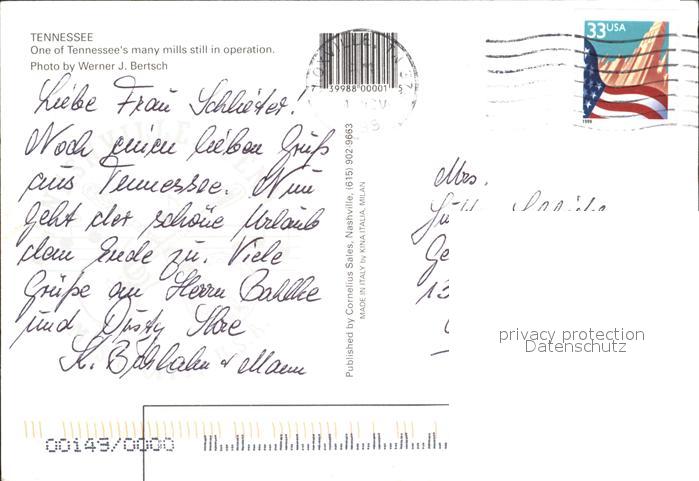 TENNESSEE
One of Tennessee's many mills still in operation.
Photo by Werner J. Bertsch
7 39988 00001 5
33USA
1999
Liebe Frau
Noch einen lieben Gruß
aus Tennessee. Nun
geht der schöne Urlaub
dem Ende zu. Viele
Grüße an Herrn
und Dusty Ihre
K. + Mann
Published by Cornelius Sales, Nashville, (615) 902-9663
MADE IN ITALY by KINA ITALIA, MILAN
Mrs.
privacy protection
Datenschutz
00149/0000